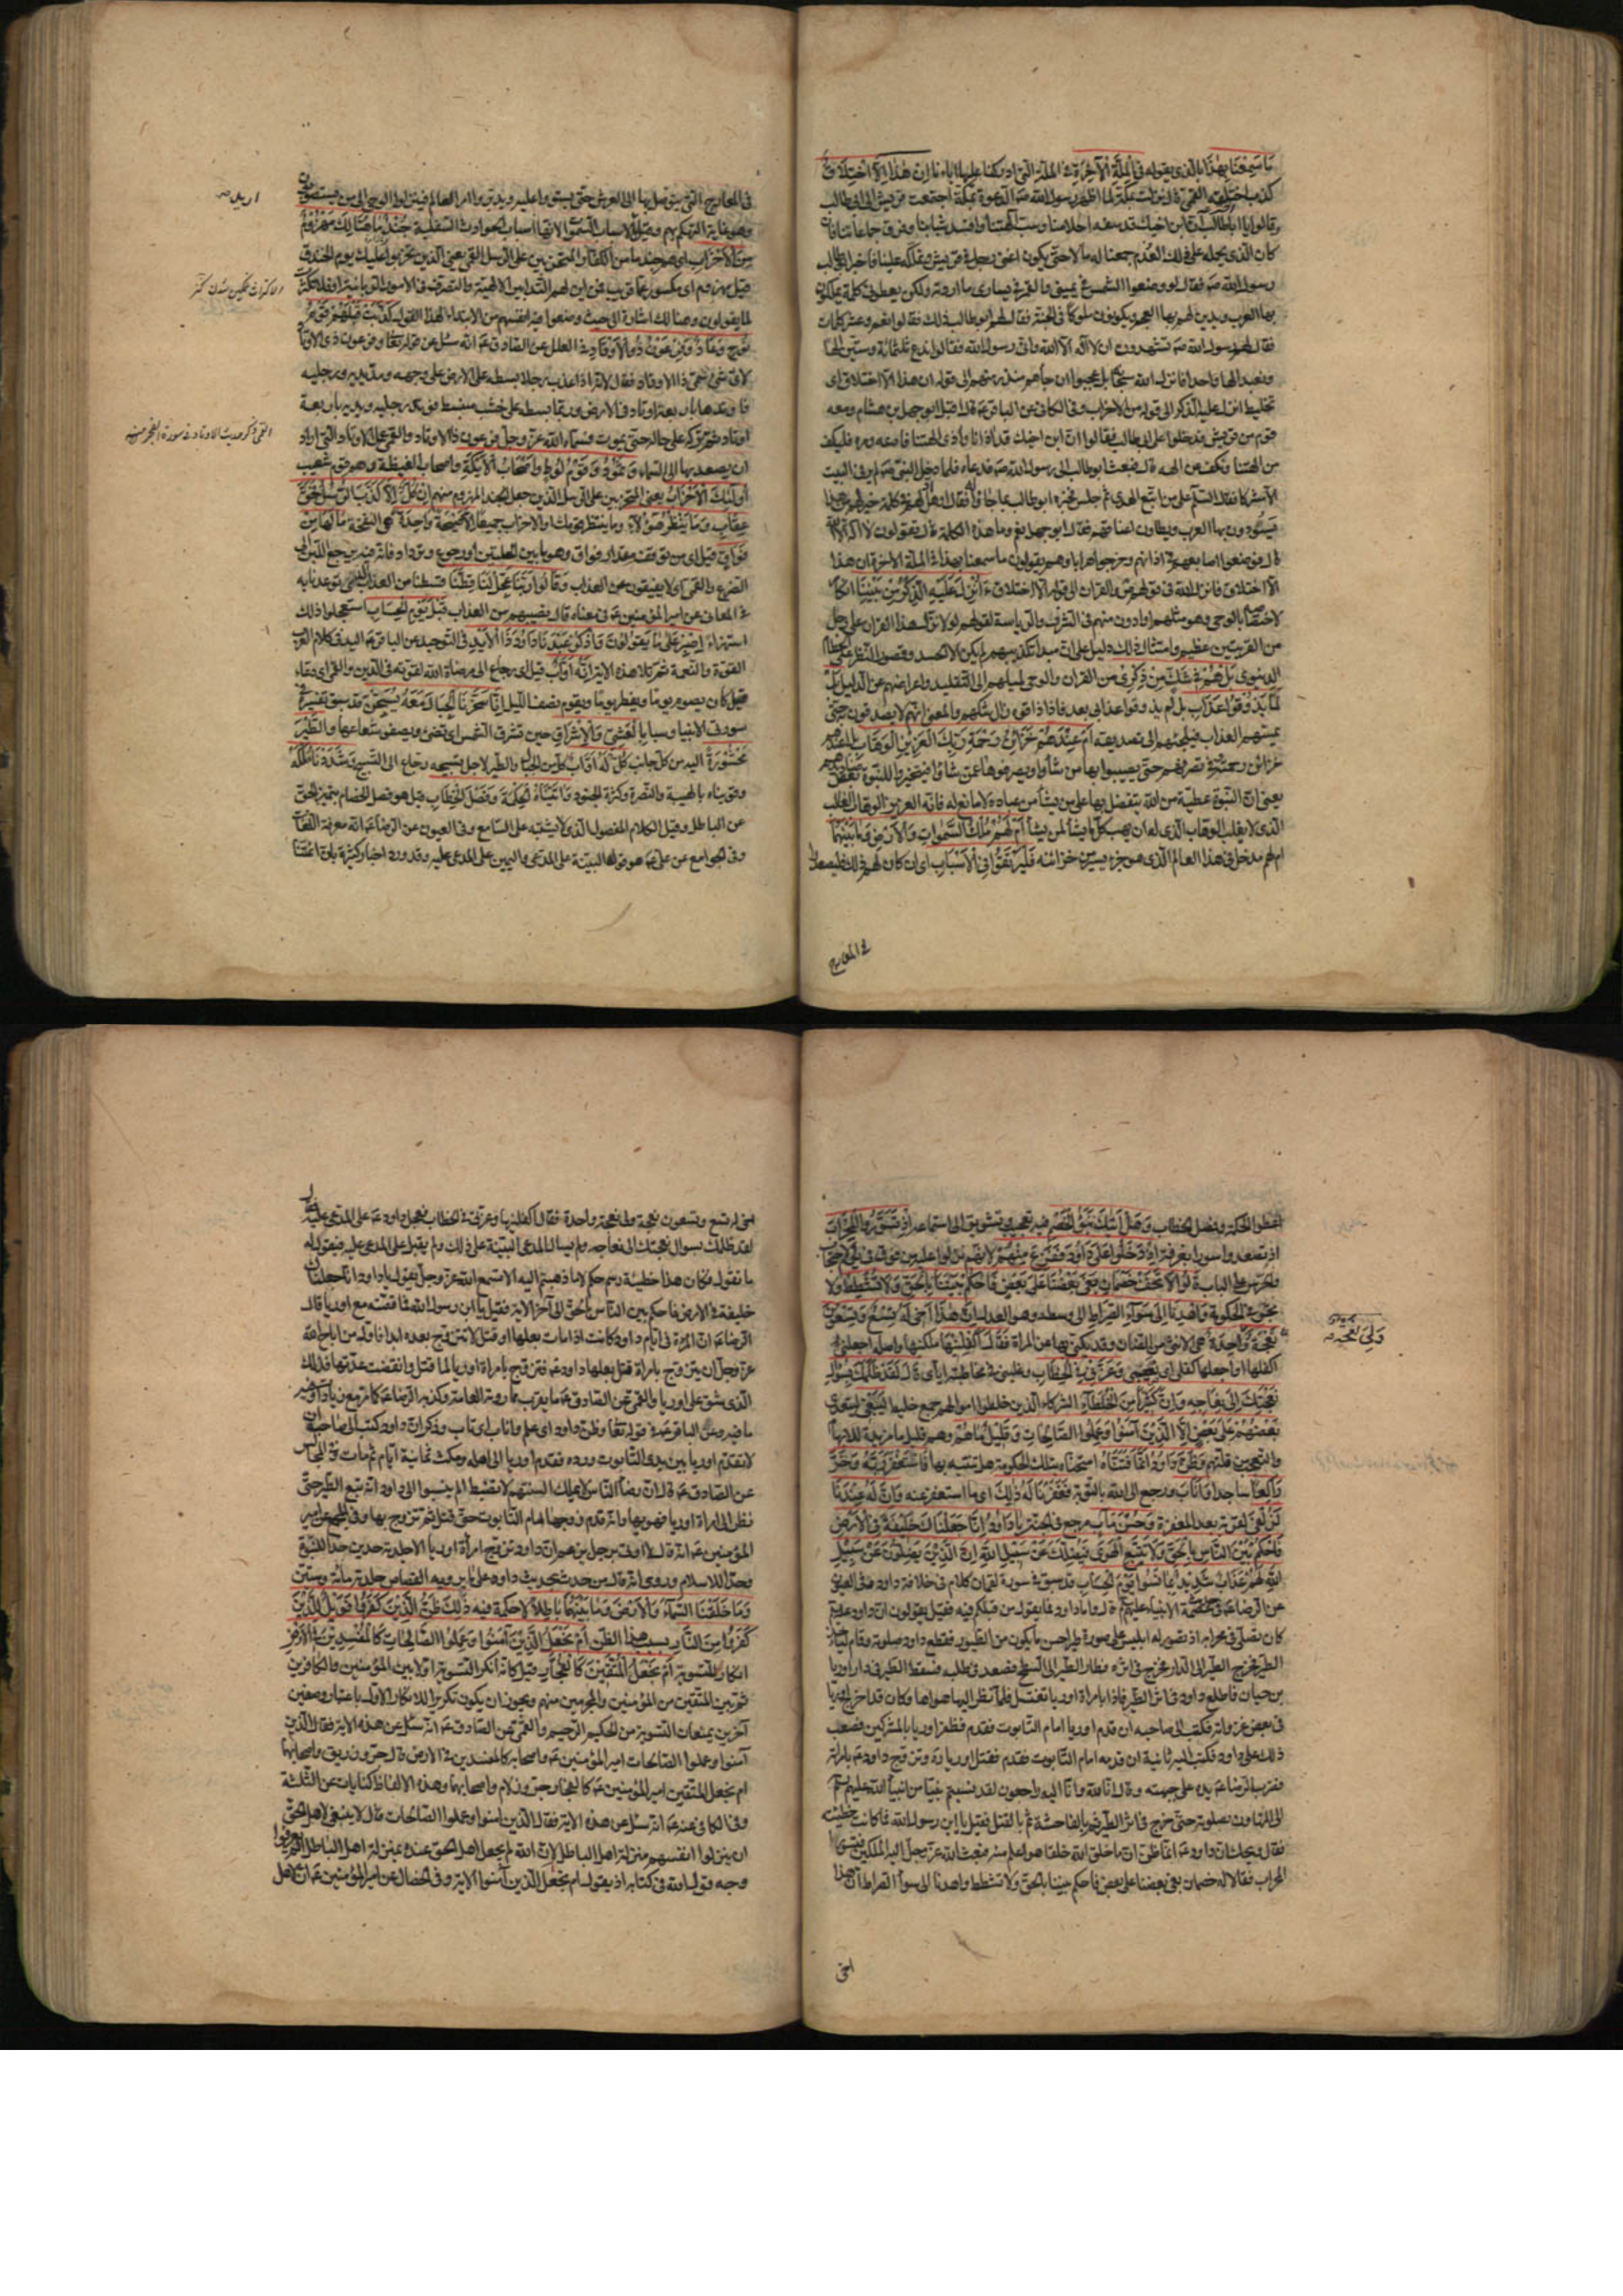 مَا سَمِعْنَا بِهٰذَا بالذي يقوله فِي الْمِلَّةِ الْآخِرَةِ في الملة التي ادركنا عليها اباءنا اِنْ هٰذَا اِلَّا اخْتِلَاقٌ
كذب اختلقه القمي قال نزلت بمكة لما اظهر رسول الله صه الدعوة بمكة اجتمعت قريش الى ابي طالب
وقالوا يا ابا طالب ان ابن اخيك قد سفه احلامنا وسب آلهتنا وافسد شباننا وفرق جماعتنا فان
كان الذي يحمله على ذلك العدم جمعنا له مالا حتى يكون اغنى رجل في قريش ونملكه علينا فاخبر ابو طالب
رسول الله صه فقال لو وضعوا الشمس في يميني والقمر في يساري ما اردته ولكن يعطوني كلمة يملكون
بها العرب ويدين لهم بها العجم ويكونون ملوكا في الجنة فقال لهم ابو طالب ذلك فقالوا نعم وعشر كلمات
فقال لهم رسول الله صه تشهدون ان لا اله الا الله واني رسول الله فقالوا ندع ثلثمائة وستين الها
ونعبد الها واحدا فانزل الله سبحانه بل عجبوا ان جاءهم منذر منهم الى قوله ان هذا الا اختلاق اي
تخليط اانزل عليه الذكر الى قوله من الاحزاب وفي الكافي عن الباقر عه قال اقبل ابو جهل بن هشام ومعه
قوم من قريش فدخلوا على ابي طالب فقالوا ان ابن اخيك قد آذانا وآذى آلهتنا فادعه ومره فليكف
عن آلهتنا ونكف عن الهه قال فبعث ابو طالب الى رسول الله صه فدعاه فلما دخل النبي صه لم ير في البيت
الا مشركا فقال السلام على من اتبع الهدى ثم جلس فخبره ابو طالب بما جاؤا له فقال او هل لهم في كلمة خير لهم من هذا
يسودون بها العرب ويطاون اعناقهم فقال ابو جهل نعم وما هذه الكلمة قال تقولون لا اله الا الله
قال فوضعوا اصابعهم في اذانهم وخرجوا هرابا وهم يقولون ما سمعنا بهذا في الملة الاخرة ان هذا
الا اختلاق فانزل الله في قولهم ص والقران الى قوله الا اختلاق ءَاُنْزِلَ عَلَيْهِ الذِّكْرُ مِنْ بَيْنِنَا انكار
لاختصاصه بالوحي وهو مثلهم او ادون منهم في الشرف والرياسة لقولهم لولا نزل هذا القران على رجل
من القريتين عظيم وامثال ذلك دليل على ان مبدأ تكذيبهم لم يكن الا الحسد وقصور النظر على الحطام
الدنيوي بَلْ هُمْ فِي شَكٍّ مِنْ ذِكْرِي من القران والوحي لميلهم الى التقليد واعراضهم عن الدليل بَلْ
لَمَّا يَذُوقُوا عَذَابِ بل لم يذوقوا عذابي بعد فاذا ذاقوه زال شكهم والمعنى انهم لا يصدقون حتى
يمسهم العذاب فيلجئهم الى تصديقه اَمْ عِنْدَهُمْ خَزَائِنُ رَحْمَةِ رَبِّكَ الْعَزِيزِ الْوَهَّابِ بل اعندهم
خزائن رحمته في تصرفهم حتى يصيبوا بها من شاؤا ويصرفوها عمن شاؤا فيتخيروا للنبوة بعض صناديدهم
يعني ان النبوة عطية من الله يتفضل بها على من يشاء من عباده لا مانع له فانه العزيز الوهاب الغالب
الذي لا يغلب الوهاب الذي له ان يهب كل ما يشاء لمن يشاء اَمْ لَهُمْ مُلْكُ السَّمٰوَاتِ وَالْاَرْضِ وَمَا بَيْنَهُمَا
ام لهم مدخل في هذا العالم الذي هو جزء يسير من خزائنه فَلْيَرْتَقُوا فِي الْاَسْبَابِ اي ان كان لهم ذلك فليصعدوا
في المعارج
في المعارج التي يتوصل بها الى العرش حتى يستووا عليه ويدبروا امر العالم فينزلوا الوحي الى من يستصوبون
وهو غاية التهكم بهم وقيل الاسباب السموات لانها اسباب الحوادث السفلية جُنْدٌ مَا هُنَالِكَ مَهْزُومٌ
مِنَ الْاَحْزَابِ اي هم جند ما من الكفار المتحزبين على الرسل القمي يعني الذين تحزبوا عليك يوم الخندق
قيل مهزوم اي مكسور عما قريب فمن اين لهم التدابير الالهية والتصرف في الامور الربانية او فلا تكترث
لما يقولون وهنالك اشارة الى حيث وضعوا فيه انفسهم من الابتداء لهذا القول كَذَّبَتْ قَبْلَهُمْ قَوْمُ
نُوحٍ وَعَادٌ وَفِرْعَوْنُ ذُو الْاَوْتَادِ في العلل عن الصادق عه انه سئل عن قوله تعالى وفرعون ذي الاوتاد
لاي شيء سمي ذا الاوتاد فقال لانه اذا عذب رجلا بسطه على الارض على وجهه ومد يديه ورجليه
فاوتدها باربعة اوتاد في الارض وربما بسطه على خشب منبسط فوتد رجليه ويديه باربعة
اوتاد ثم تركه على حاله حتى يموت فسماه الله عز وجل فرعون ذا الاوتاد والقمي عمل الاوتاد التي اراد
ان يصعد بها الى السماء وَثَمُودُ وَقَوْمُ لُوطٍ وَاَصْحَابُ الْاَيْكَةِ واصحاب الغيضة وهم قوم شعيب
اُولٰئِكَ الْاَحْزَابُ يعني المتحزبين على الرسل الذين جعل الجند المهزوم منهم اِنْ كُلٌّ اِلَّا كَذَّبَ الرُّسُلَ فَحَقَّ
عِقَابِ وَمَا يَنْظُرُ هٰؤُلَاءِ وما ينتظر قومك او الاحزاب جميعا اِلَّا صَيْحَةً وَاحِدَةً هي النفخة مَا لَهَا مِنْ
فَوَاقٍ قيل اي من توقف مقدار فواق وهو ما بين الحلبتين او رجوع وترداد فانه فيه يرجع اللبن الى
الضرع والقمي اي لا يفيقون من العذاب وَقَالُوا رَبَّنَا عَجِّلْ لَنَا قِطَّنَا قسطنا من العذاب الذي توعدنا به
في المعاني عن امير المؤمنين عه في معناه قال نصيبهم من العذاب قَبْلَ يَوْمِ الْحِسَابِ استعجلوا ذلك
استهزاء اِصْبِرْ عَلٰى مَا يَقُولُونَ وَاذْكُرْ عَبْدَنَا دَاوُدَ ذَا الْاَيْدِ في التوحيد عن الباقر عه اليد في كلام العرب
القوة والنعمة ثم تلا هذه الاية اِنَّهُ اَوَّابٌ قيل اي رجاع الى مرضاة الله لقوته في الدين والقمي اي دعاء
قيل كان يصوم يوما ويفطر يوما ويقوم نصف الليل اِنَّا سَخَّرْنَا الْجِبَالَ مَعَهُ يُسَبِّحْنَ قد سبق تفسيره في
سورة الانبياء وسبا بِالْعَشِيِّ وَالْاِشْرَاقِ حين تشرق الشمس اي تضيء ويصفو شعاعها وَالطَّيْرَ
مَحْشُورَةً اليه من كل جانب كُلٌّ لَهُ اَوَّابٌ كل من الجبال والطير لاجل تسبيحه رجاع الى التسبيح وَشَدَدْنَا مُلْكَهُ
وقويناه بالهيبة والنصرة وكثرة الجنود وَاٰتَيْنَاهُ الْحِكْمَةَ وَفَصْلَ الْخِطَابِ قيل هو فصل الخصام بتميز الحق
عن الباطل وقيل الكلام المفصول الذي لا يشتبه على السامع وفي العيون عن الرضا عه انه معرفة اللغات
وفي الجوامع عن علي عه هو قوله البينة على المدعي واليمين على المدعى عليه وقد ورد اخبار كثيرة بان ائمتنا
اعطوا الحكمة وفصل الخطاب وَهَلْ اَتٰيكَ نَبَؤُ الْخَصْمِ فيه تعجيب وتشويق الى استماعه اِذْ تَسَوَّرُوا الْمِحْرَابَ
اذ تصعدوا سور الغرفة اِذْ دَخَلُوا عَلٰى دَاوُدَ فَفَزِعَ مِنْهُمْ لانهم نزلوا عليه من فوق في يوم الاحتجاب
والحرس على الباب قَالُوا لَا تَخَفْ خَصْمَانِ بَغٰى بَعْضُنَا عَلٰى بَعْضٍ فَاحْكُمْ بَيْنَنَا بِالْحَقِّ وَلَا تُشْطِطْ ولا
تجر في الحكومة وَاهْدِنَا اِلٰى سَوَاءِ الصِّرَاطِ الى وسطه وهو العدل اِنَّ هٰذَا اَخِي لَهُ تِسْعٌ وَتِسْعُونَ
نَعْجَةً وَاحِدَةٌ هي الانثى من الضان وقد يكنى بها عن المراة فَقَالَ اَكْفِلْنِيهَا ملكنيها واصله اجعلني
اكفلها او اجعلها كفلي اي نصيبي وَعَزَّنِي فِي الْخِطَابِ وغلبني في مخاطبته اياي قَالَ لَقَدْ ظَلَمَكَ بِسُؤَالِ
نَعْجَتِكَ اِلٰى نِعَاجِهِ وَاِنَّ كَثِيرًا مِنَ الْخُلَطَاءِ الشركاء الذين خلطوا اموالهم جمع خليط لَيَبْغِي ليتعدى
بَعْضُهُمْ عَلٰى بَعْضٍ اِلَّا الَّذِينَ اٰمَنُوا وَعَمِلُوا الصَّالِحَاتِ وَقَلِيلٌ مَا هُمْ وهم قليل ما مزيدة للابهام
والتعجب من قلتهم وَظَنَّ دَاوُدُ اَنَّمَا فَتَنَّاهُ امتحناه بتلك الحكومة هل تنبه بها فَاسْتَغْفَرَ رَبَّهُ وَخَرَّ
رَاكِعًا ساجدا وَاَنَابَ ورجع الى الله بالتوبة فَغَفَرْنَا لَهُ ذٰلِكَ اي ما استغفر عنه وَاِنَّ لَهُ عِنْدَنَا
لَزُلْفٰى لقربة بعد المغفرة وَحُسْنَ مَاٰبٍ مرجع في الجنة يَا دَاوُدُ اِنَّا جَعَلْنَاكَ خَلِيفَةً فِي الْاَرْضِ
فَاحْكُمْ بَيْنَ النَّاسِ بِالْحَقِّ وَلَا تَتَّبِعِ الْهَوٰى فَيُضِلَّكَ عَنْ سَبِيلِ اللهِ اِنَّ الَّذِينَ يَضِلُّونَ عَنْ سَبِيلِ
اللهِ لَهُمْ عَذَابٌ شَدِيدٌ بِمَا نَسُوا يَوْمَ الْحِسَابِ قد سبق في سورة لقمان كلام في خلافة داود وفي العيون
عن الرضا عه في عصمة الانبياء عليهم قال واما داود فما يقول من قبلكم فيه فقيل يقولون ان داود عليه
كان يصلي في محرابه اذ تصور له ابليس على صورة طير احسن ما يكون من الطيور فقطع داود صلوته وقام لياخذ
الطير فخرج الطير الى الدار فخرج في اثره فطار الطير الى السطح فصعد في طلبه فسقط الطير في دار اوريا
بن حيان فاطلع داود في اثر الطير فاذا بامراة اوريا تغتسل فلما نظر اليها هواها وكان قد اخرج اوريا
في بعض غزواته فكتب الى صاحبه ان قدم اوريا امام التابوت فقدم فظفر اوريا بالمشركين فصعب
ذلك على داود فكتب اليه ثانية ان قدمه امام التابوت فقدم فقتل اوريا ره وتزوج داود عه بامراته
فضرب الرضا عه يده على جبهته وقال انا لله وانا اليه راجعون لقد نسبتم نبيا من انبياء الله عليهم
الى التهاون بصلوته حتى خرج في اثر الطير ثم بالفاحشة ثم بالقتل فقيل يا ابن رسول الله فما كانت خطيئته
فقال ويحك ان داود عه انما ظن ان ما خلق الله خلقا هو اعلم منه فبعث الله عز وجل اليه الملكين فتسورا
المحراب فقالا له خصمان بغى بعضنا على بعض فاحكم بيننا بالحق ولا تشطط واهدنا الى سواء الصراط ان هذا
اخي
وَلِيَ نَعْجَةٌ
اخي له تسع وتسعون نعجة ولي نعجة واحدة فقال اكفلنيها وعزني في الخطاب فعجل داود عه على المدعى عليه فقال
لقد ظلمك بسؤال نعجتك الى نعاجه ولم يسال المدعي البينة على ذلك ولم يقبل على المدعى عليه فيقول له
ما تقول فكان هذا خطيئة رسم حكم لا ما ذهبتم اليه الا تسمع الله عز وجل يقول يا داود انا جعلناك
خليفة في الارض فاحكم بين الناس بالحق الى آخر الاية فقيل يا ابن رسول الله فما قصته مع اوريا قال
الرضا عه ان المراة في ايام داود كانت اذا مات بعلها او قتل لا تتزوج بعده ابدا فاول من اباح الله
عز وجل ان يتزوج بامراة قتل بعلها داود عه فتزوج بامراة اوريا لما قتل وانقضت عدتها فذلك
الذي شق على اوريا والقمي عن الصادق عه ما يقرب مما روته العامة وكذبه الرضا عه كما مر مع زيادات
ما فيه وعن الباقر عه في قوله تعالى وظن داود اي علم واناب اي تاب وذكر ان داود كتب الى صاحبه ان
لا تقدم اوريا بين يدي التابوت ورده فقدم اوريا الى اهله ومكث ثمانية ايام ثم مات وفي المجالس
عن الصادق عه قال ان رضا الناس لا يملك والسنتهم لا تضبط الم ينسبوا الى داود انه تبع الطير حتى
نظر الى امراة اوريا فهويها وانه قدم زوجها امام التابوت حتى قتل ثم تزوج بها وفي المجمع عن امير
المؤمنين عه انه قال لا اوتى برجل يزعم ان داود تزوج امراة اوريا الا جلدته حدين حدا للنبوة
وحدا للاسلام وروي انه قال من حدث بحديث داود على ما يرويه القصاص جلدته مائة وستين
وَمَا خَلَقْنَا السَّمَاءَ وَالْاَرْضَ وَمَا بَيْنَهُمَا بَاطِلًا لا حكمة فيه ذٰلِكَ ظَنُّ الَّذِينَ كَفَرُوا فَوَيْلٌ لِلَّذِينَ
كَفَرُوا مِنَ النَّارِ بسبب هذا الظن اَمْ نَجْعَلُ الَّذِينَ اٰمَنُوا وَعَمِلُوا الصَّالِحَاتِ كَالْمُفْسِدِينَ فِي الْاَرْضِ
انكار للتسوية اَمْ نَجْعَلُ الْمُتَّقِينَ كَالْفُجَّارِ قيل كانه انكر التسوية اولا بين المؤمنين والكافرين
ثم بين المتقين من المؤمنين والمجرمين منهم ويجوز ان يكون تكريرا للانكار الاول باعتبار وصفين
آخرين يمنعان التسوية من الحكيم الرحيم والقمي عن الصادق عه انه سئل عن هذه الاية فقال الذين
آمنوا وعملوا الصالحات امير المؤمنين عه واصحابه كالمفسدين في الارض قال حبتر وزريق واصحابهما
ام نجعل المتقين امير المؤمنين عه كالفجار حبتر ودلام واصحابهما وهذه الالفاظ كنايات عن الثلثة
وفي الكافي عنه عه انه سئل عن هذه الاية فقال الذين آمنوا وعملوا الصالحات قال لا ينبغي لاهل الحق
ان ينزلوا انفسهم منزلة اهل الباطل لان الله لم يجعل اهل الحق عنده بمنزلة اهل الباطل الم يعرفوا
وجه قول الله في كتابه اذ يقول ام نجعل الذين آمنوا الاية وفي الخصال عن امير المؤمنين عه ان لاهل